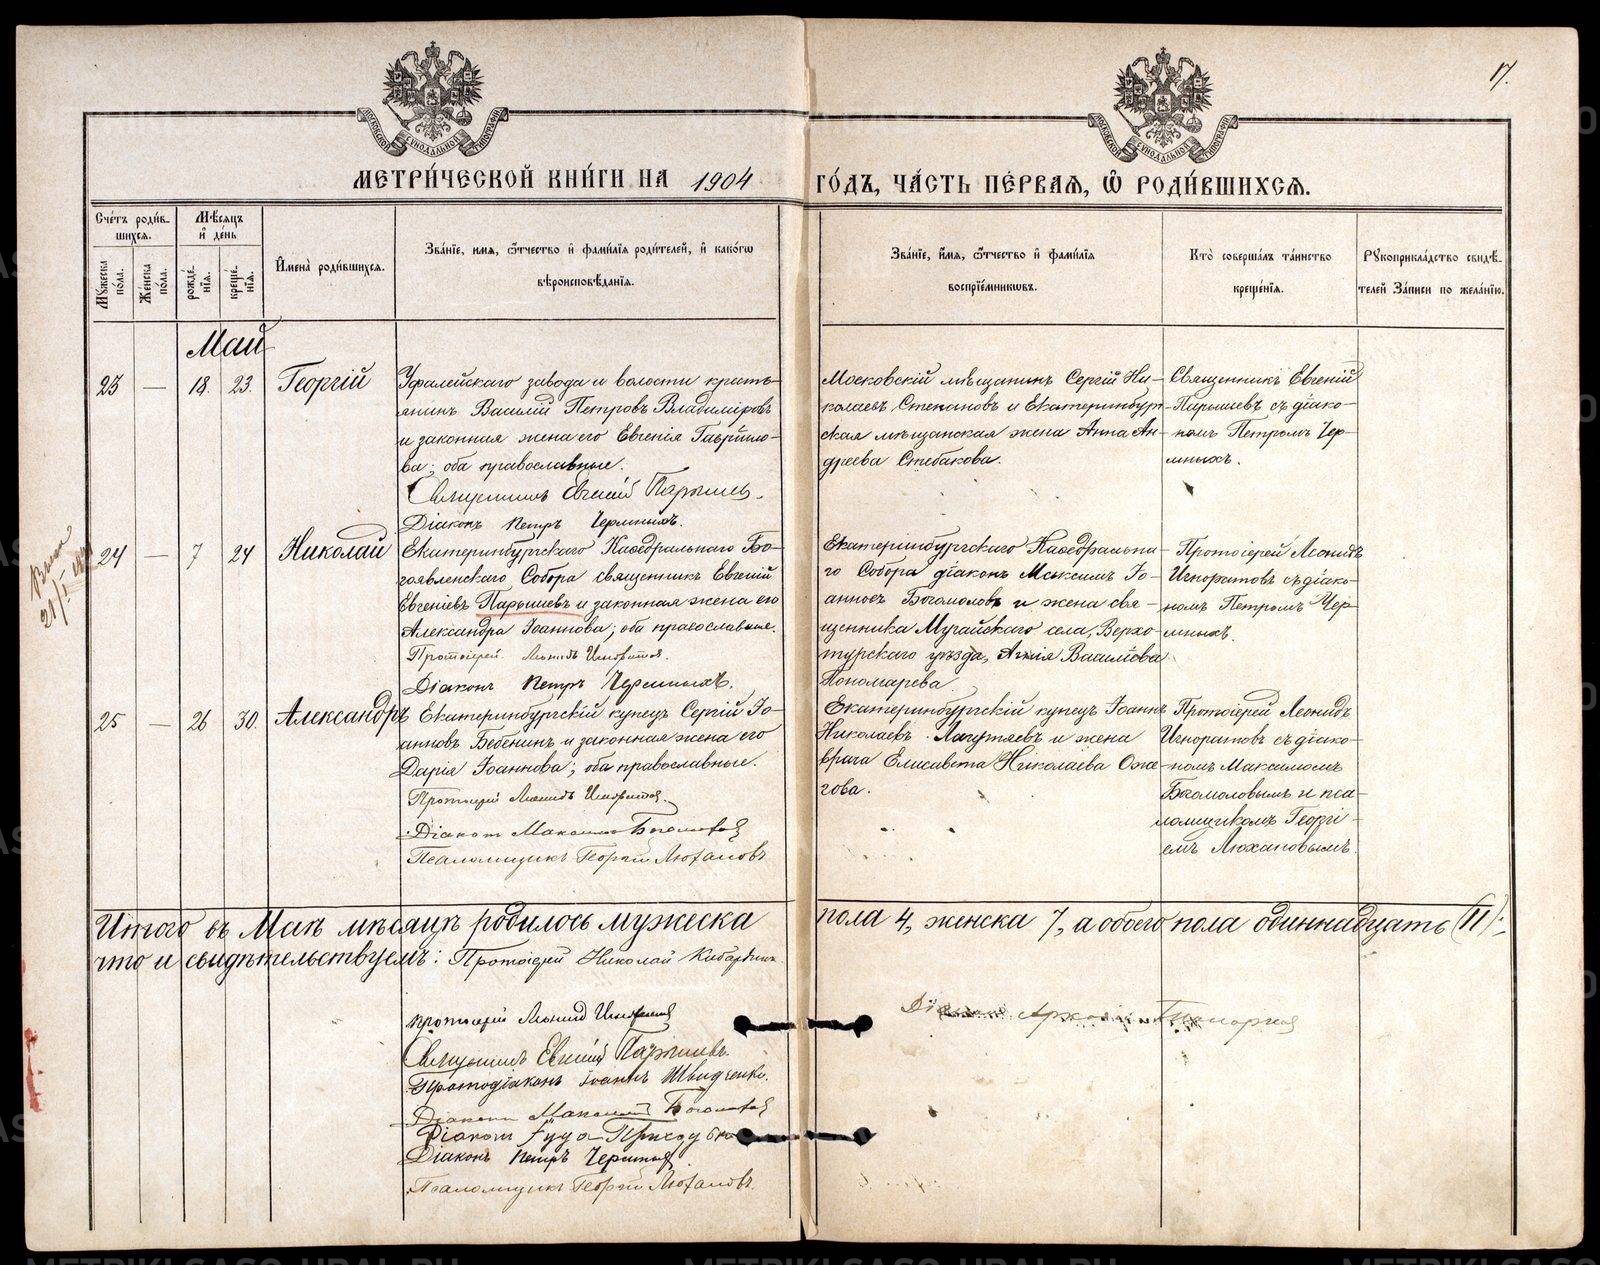 17.
МОСКОВСКОЙ СѴНОДАЛЬНОЙ ТИПОГРАФІИ
МОСКОВСКОЙ СѴНОДАЛЬНОЙ ТИПОГРАФІИ
МЕТРИ́ЧЕСКОЙ КНИ́ГИ НА 1904 ГО́ДЪ, ЧА́СТЬ ПЕ́РВАЯ, Ѿ РОДИ́ВШИХСЯ.
Сче́тъ роди́в-
шихся.
Мѣ́сяцъ
и҆ де́нь
Му́жеска
по́ла.
Же́нска
по́ла.
рожде́-
нїя.
креще́-
нїя.
И҆мена̀ роди́вшихся.
Зва́нїе, и҆мя, ѻ҆́тчество и҆ фами́лїя роди́телей, и҆ како́гѡ
вѣроисповѣ́данїя.
Зва́нїе, и҆́мя, ѻ҆́тчество и҆ фами́лїя
воспрїе́мникѡвъ.
Кто̀ соверша́лъ та́инство
креще́нїя.
Рꙋкоприкла́дство свидѣ́-
телей за́писи по жела́нїю.
Май
23 — 18. 23. Георгій
Уфалейскаго завода и волости кресть-
янинъ Василій Петровъ Владиміровъ
и законная жена его Евгенія Гаврiило-
ва; оба православные.
Священникъ Евгеній Парышев.
Діаконъ Петръ Черемныхъ.
Московскій мѣщанинъ Сергій Ни-
колаевъ Степановъ и Екатеринбург-
ская мѣщанская жена Анна Ан-
дреева Стебакова.
Священникъ Евгеній
Парышевъ съ діако-
номъ Петромъ Чер-
мныхъ.
24 — 7 24 Николай
Екатеринбургскаго Каѳедральнаго Бо-
гоявленскаго Собора священникъ Евгеній
Евгеніевъ Парышевъ и законная жена его
Александра Іоаннова; оба православные.
Протоіерей Леонидъ Игноратов.
Діаконъ Петръ Черемныхъ.
Екатеринбургскаго Каѳедральна-
го Собора діаконъ Максимъ Іо-
анновъ Богомоловъ и жена свя-
щенника Мугайскаго села, Верхо-
турскаго уѣзда, Васильева
Пономарева
Протоіерей Леонидъ
Игноратовъ съ діако-
номъ Петромъ Чер-
мныхъ.
25 — 26 30. Александръ
Екатеринбургскій купецъ Сергій Іо-
анновъ Бебенинъ и законная жена его
Дарія Іоаннова; оба православные.
Протоіерей Леонидъ Игноратов.
Діаконъ Максимъ Богомолов
Псаломщикъ Георгій Люхановъ
Екатеринбургскій купецъ Іоаннъ
Николаевъ Лагутяевъ и жена
врача Елисавета Николаева Ожe-
гова.
Протоіерей Леонидъ
Игноратовъ съ діако-
номъ Максимомъ
Богомоловымъ и пса-
ломщикомъ Георгі-
емъ Люхановымъ.
Итого въ Маѣ мѣсяцѣ родилось мужеска пола 4, женска 7, а обоего пола одиннадцать (11):
что и свидѣтельствуемъ: Протоіерей Николай
протоіерей Леонид Игноратов
Священникъ Евгеній Парышевъ.
Протодіаконъ Іоаннъ Швидченко.
Діаконъ Максимъ Богомолов
Діаконъ
Діаконъ Петръ Черемных
Псаломщикъ Георгій Люхановъ.
METRIKI.GASO-URAL.RU